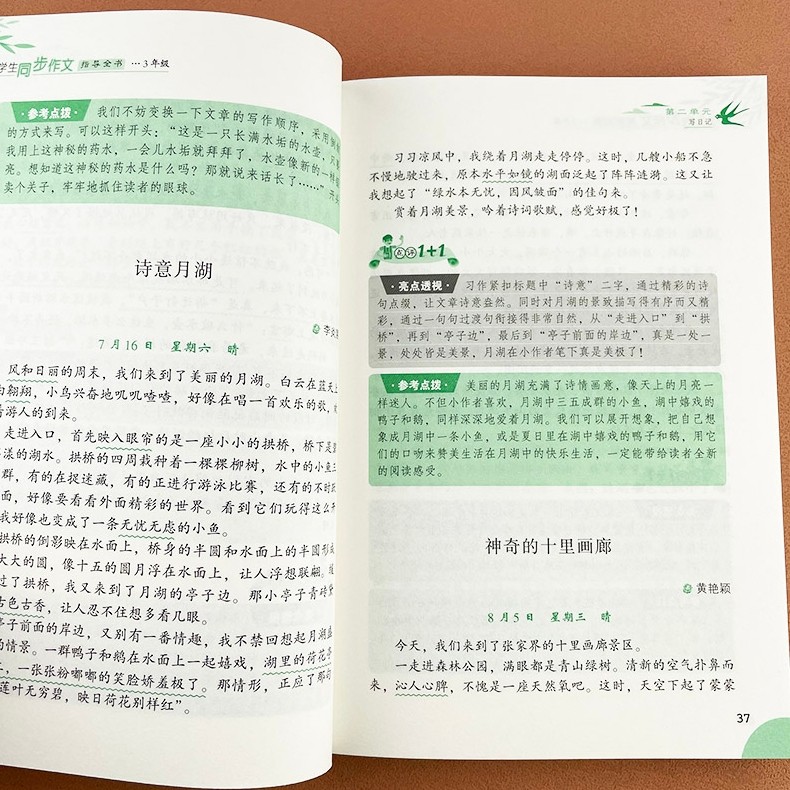 学生同步作文 指导全书 …3年级
参考点拨 我们不妨变换一下文章的写作顺序，采用倒
的方式来写。可以这样开头：“这是一只长满水垢的水壶，
我用上这神秘的药水，一会儿水垢就拜拜了，水壶像新的一样
亮。想知道这神秘的药水是什么吗？那就说来话长了……”开头
卖个关子，牢牢地抓住读者的眼球。
诗意月湖
李炎
7月16日 星期六 晴
风和日丽的周末，我们来到了美丽的月湖。白云在蓝天上
翱翔，小鸟兴奋地叽叽喳喳，好像在唱一首欢乐的歌，
游人的到来。
走进入口，首先映入眼帘的是一座小小的拱桥，桥下是
漾的湖水。拱桥的四周栽种着一棵棵柳树，水中的小鱼三
群，有的在捉迷藏，有的正进行游泳比赛，还有的不时
面，好像要看看外面精彩的世界。看到它们玩得这么开
我好像也变成了一条无忧无虑的小鱼。
拱桥的倒影映在水面上，桥身的半圆和水面上的半圆形成
大大的圆，像十五的圆月浮在水面上，让人浮想联翩。
过了拱桥，我又来到了月湖的亭子边。那小亭子青砖
古色古香，让人忍不住想多看几眼。
亭子前面的岸边，又别有一番情趣，我不禁回想起月湖
的情景。一群鸭子和鹅在水面上一起嬉戏，湖里的荷花
，一张张粉嘟嘟的笑脸娇羞极了。那情形，正应了那句
莲叶无穷碧，映日荷花别样红”。
第二单元
写日记
习习凉风中，我绕着月湖走走停停。这时，几艘小船不急
不慢地驶过来，原本水平如镜的湖面泛起了阵阵涟漪。这又让
我想起了“绿水本无忧，因风皱面”的佳句来。
赏着月湖美景，吟着诗词歌赋，感觉好极了！
点评1+1
亮点透视 习作紧扣标题中“诗意”二字，通过精彩的诗
句点缀，让文章诗意盎然。同时对月湖的景致描写得有序而又精
彩，通过一句句过渡句衔接得非常自然，从“走进入口”到“拱
桥”，再到“亭子边”，最后到“亭子前面的岸边”，真是一处一
景，处处皆是美景，月湖在小作者笔下真是美极了！
参考点拨 美丽的月湖充满了诗情画意，像天上的月亮一
样迷人。不但小作者喜欢，月湖中三五成群的小鱼，湖中嬉戏的
鸭子和鹅，同样深深地爱着月湖。我们可以展开想象，把自己想
象成月湖中一条小鱼，或是夏日里在湖中嬉戏的鸭子和鹅，用它
们的口吻来赞美生活在月湖中的快乐生活，一定能带给读者全新
的阅读感受。
神奇的十里画廊
黄艳颖
8月5日 星期三 晴
今天，我们来到了张家界的十里画廊景区。
一走进森林公园，满眼都是青山绿树。清新的空气扑鼻而
来，沁人心脾，不愧是一座天然氧吧。这时，天空下起了蒙蒙
37